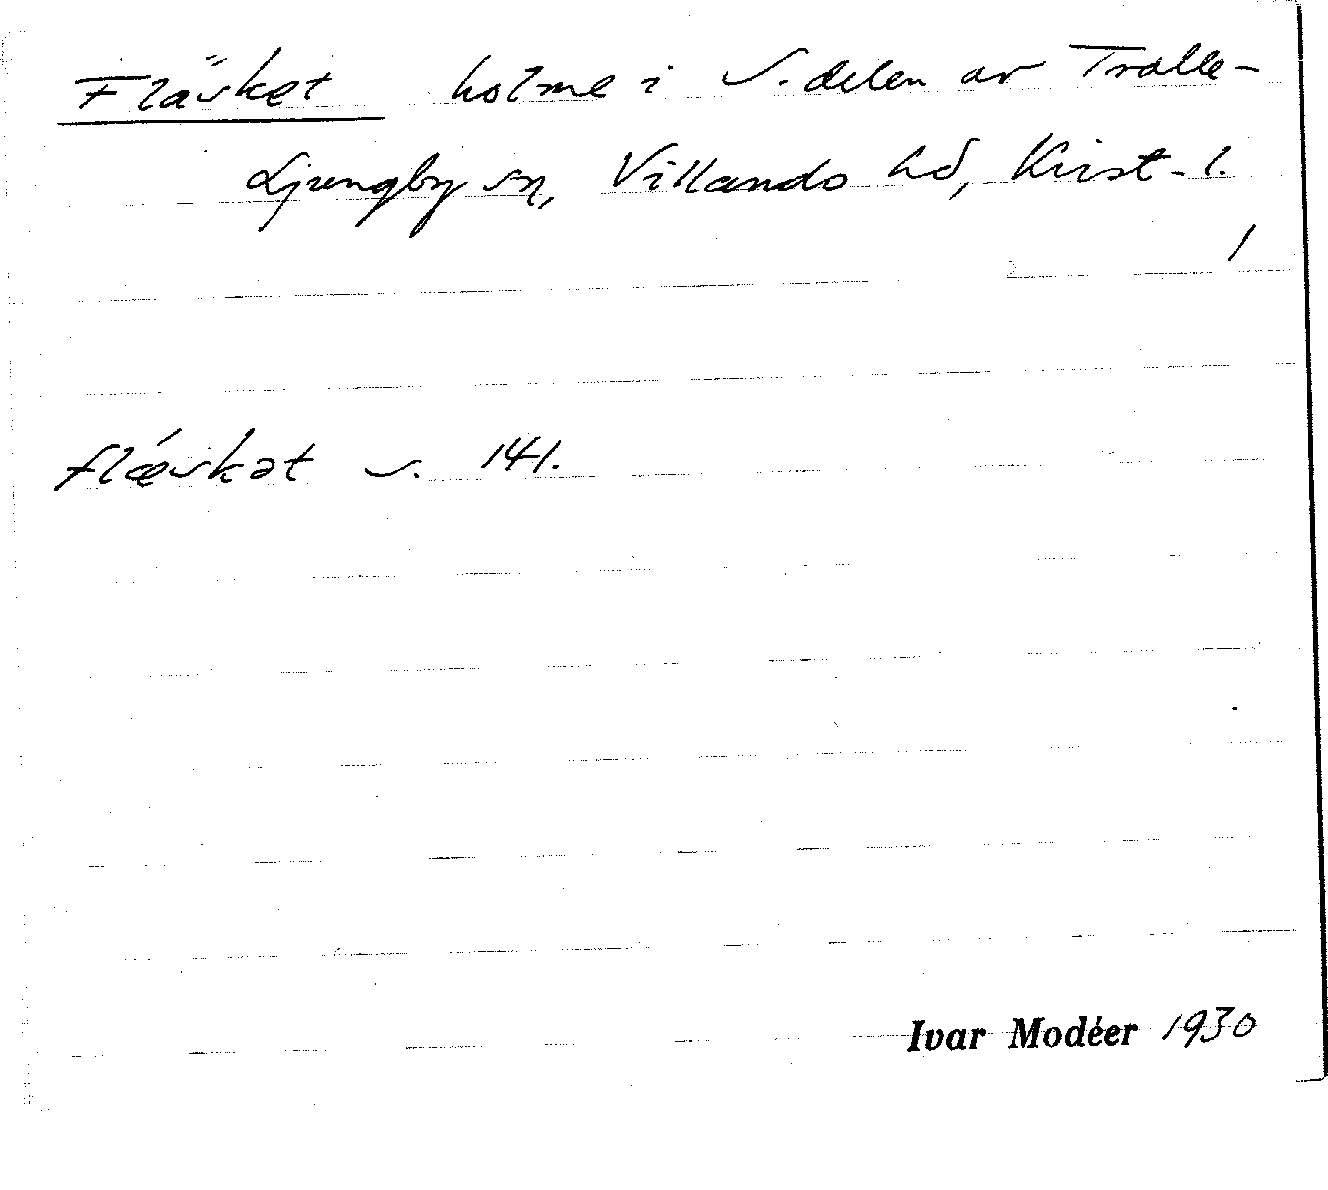 Fläsket holme i S. delen av Trolle-
Ljungby sn, Villands hd, Krist-l.
/
flǽskət s. 141.
Ivar Modéer 1930